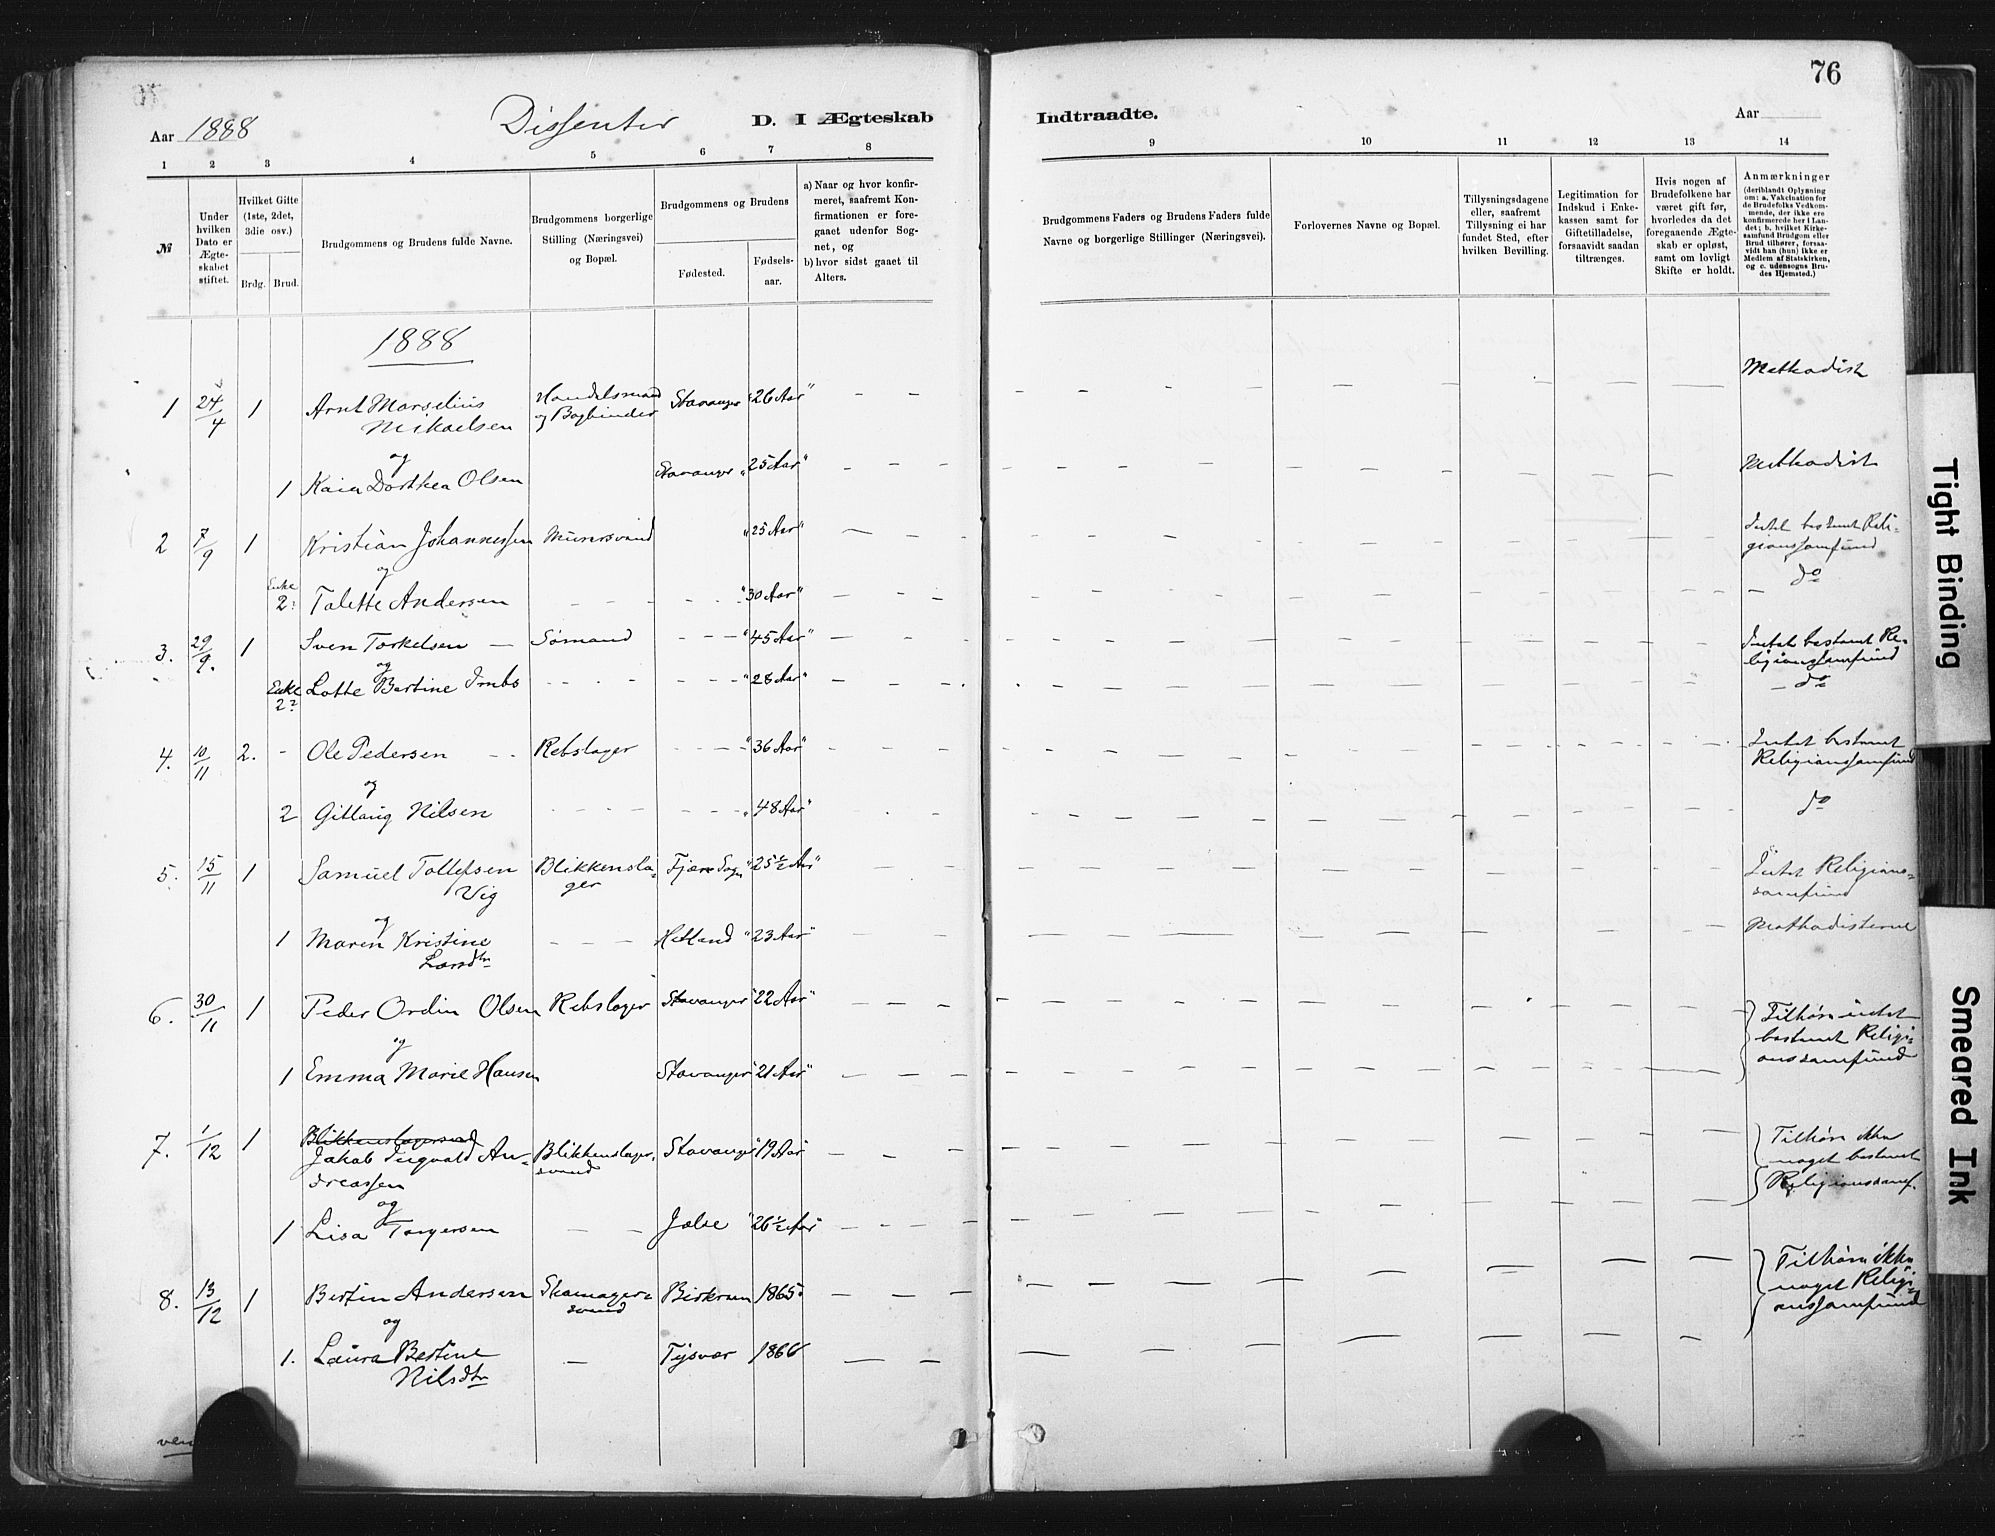 76
Aar 1888 Dissenter D. I Ægteskab Indtraadte. Aar
1 2 3 4 5 6 7 8 9 10 11 12 13 14
№
Under hvilken Dato er Ægteskabet stiftet.
Hvilket Gifte (1ste, 2det, 3die osv.)
Brdg. Brud.
Brudgommens og Brudens fulde Navne.
Brudgommens borgerlige Stilling (Næringsvei) og Bopæl.
Brudgommens og Brudens
Fødested. Fødselsaar.
a) Naar og hvor konfirmeret, saafremt Konfirmationen er foregaaet udenfor Sognet, og
b) hvor sidst gaaet til Alters.
Brudgommens Faders og Brudens Faders fulde Navne og borgerlige Stillinger (Næringsvei).
Forlovernes Navne og Bopæl.
Tillysningsdagene eller, saafremt Tillysning ei har fundet Sted, efter hvilken Bevilling.
Legitimation for Indskud i Enkekassen samt for Giftetilladelse, forsaavidt saadan tiltrænges.
Hvis nogen af Brudefolkene har været gift før, hvorledes da det foregaaende Ægteskab er opløst, samt om lovligt Skifte er holdt.
Anmærkninger
(deriblandt Oplysning om: a. Vakcination for de Brudefolks Vedkommende, der ikke ere konfirmerede her i Landet; b. hvilket Kirkesamfund Brudgom eller Brud tilhører, forsaavidt han (hun) ikke er Medlem af Statskirken, og c. udensogns Brudes Hjemsted.)
1888
1 24/4 1 Arnt Marselius Mikaelsen Handelsmand og Bogbinder Stavanger "26 Aar" Methodist
og
1 Kaia Dorthea Olsen Stavanger "25 Aar" Methodist
2 7/9 1 Kristian Johannessen Murersvend "25 Aar" Intet bestemt Religionssamfund
og
Enke 2. Talette Andersen "30 Aar" do
3. 29/9. 1 Sven Torkelsen Sømand "45 Aar" Intet bestemt Religionssamfund
og
Enke 2 Lotte Bertine "28 Aar" do
4. 10/11 2. Ole Pedersen Rebslager "36 Aar" Intet bestemt Religionssamfund
og
2 Gitlaug Nilsen "48 Aar" do
5. 15/11 1 Samuel Tollefsen Vig Blikkenslager Fjære Sogn "25½ Aar" Intet Religionssamfund
og
1 Maren Kristine Larsdtr Hetland "23 Aar" Methodisterne
6. 30/11 1 Peder Ordin Olsen Rebslager Stavanger "22 Aar" Tilhøre intet bestemt Religionssamfund
og
1 Emma Marie Hansen Stavanger "21 Aar"
7. 1/12 1 Blikkenslagersvend Jakob Ingvald Andreassen Blikkenslagersvend Stavanger "19 Aar Tilhøre ikke noget bestemt Religionssamf.
og
1 Lisa Torgersen Jelse "26½ Aar"
8. 13/12 1 Bertin Andersen Skomagersvend Birkrem 1865. Tilhøre ikke noget Religionssamfund
og
1. Laura Bertine Nilsdtr Tysvær 1866
Tight Binding
Smeared Ink